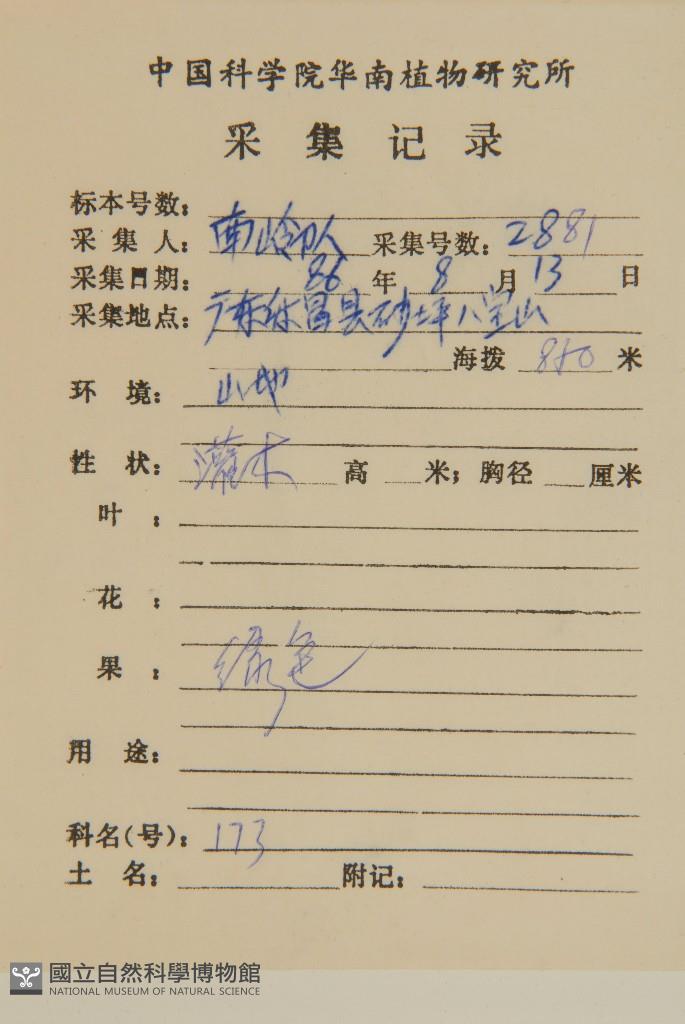 中国科学院华南植物研究所
采集记录
标本号数:
采集人: 南岭队 采集号数: 2881
采集日期: 86年8月13日
采集地点: 广东乐昌县砂坪八宝山
海拨 850 米
环境: 山地
性状: 灌木 高 米; 胸径 厘米
叶:
花:
果: 绿色
用途:
科名(号): 173
土名: 附记:
國立自然科學博物館
NATIONAL MUSEUM OF NATURAL SCIENCE